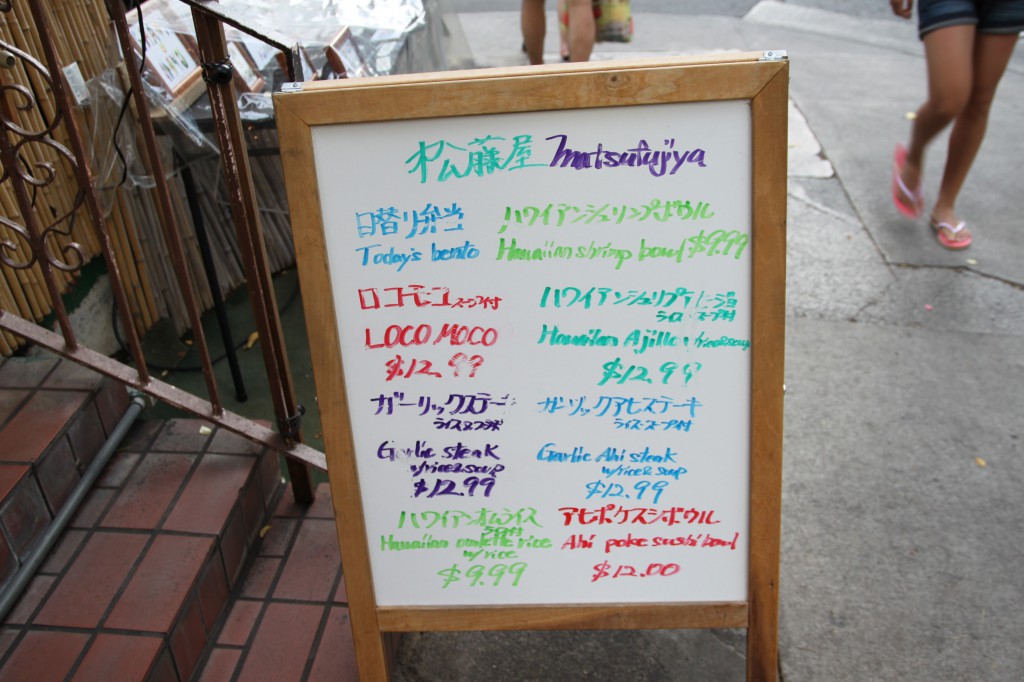 松藤屋 Matsufujiya
日替り弁当
Today's bento
ハワイアンシュリンプボウル
Hawaiian shrimp bowl $9.99
ロコモコ スープ付
LOCO MOCO
$12.99
ハワイアンシュリンプアヒージョ
ライス・スープ付
Hawaiian Ajillo w/rice&soup
$12.99
ガーリックステーキ
ライス&スープ付
Garlic steak
w/rice&soup
$12.99
ガーリックアヒステーキ
ライス・スープ付
Garlic Ahi steak
w/rice&soup
$12.99
ハワイアンオムライス
Hawaiian omlette rice
w/rice
$9.99
アヒポケスシボウル
Ahi poke sushi bowl
$12.00